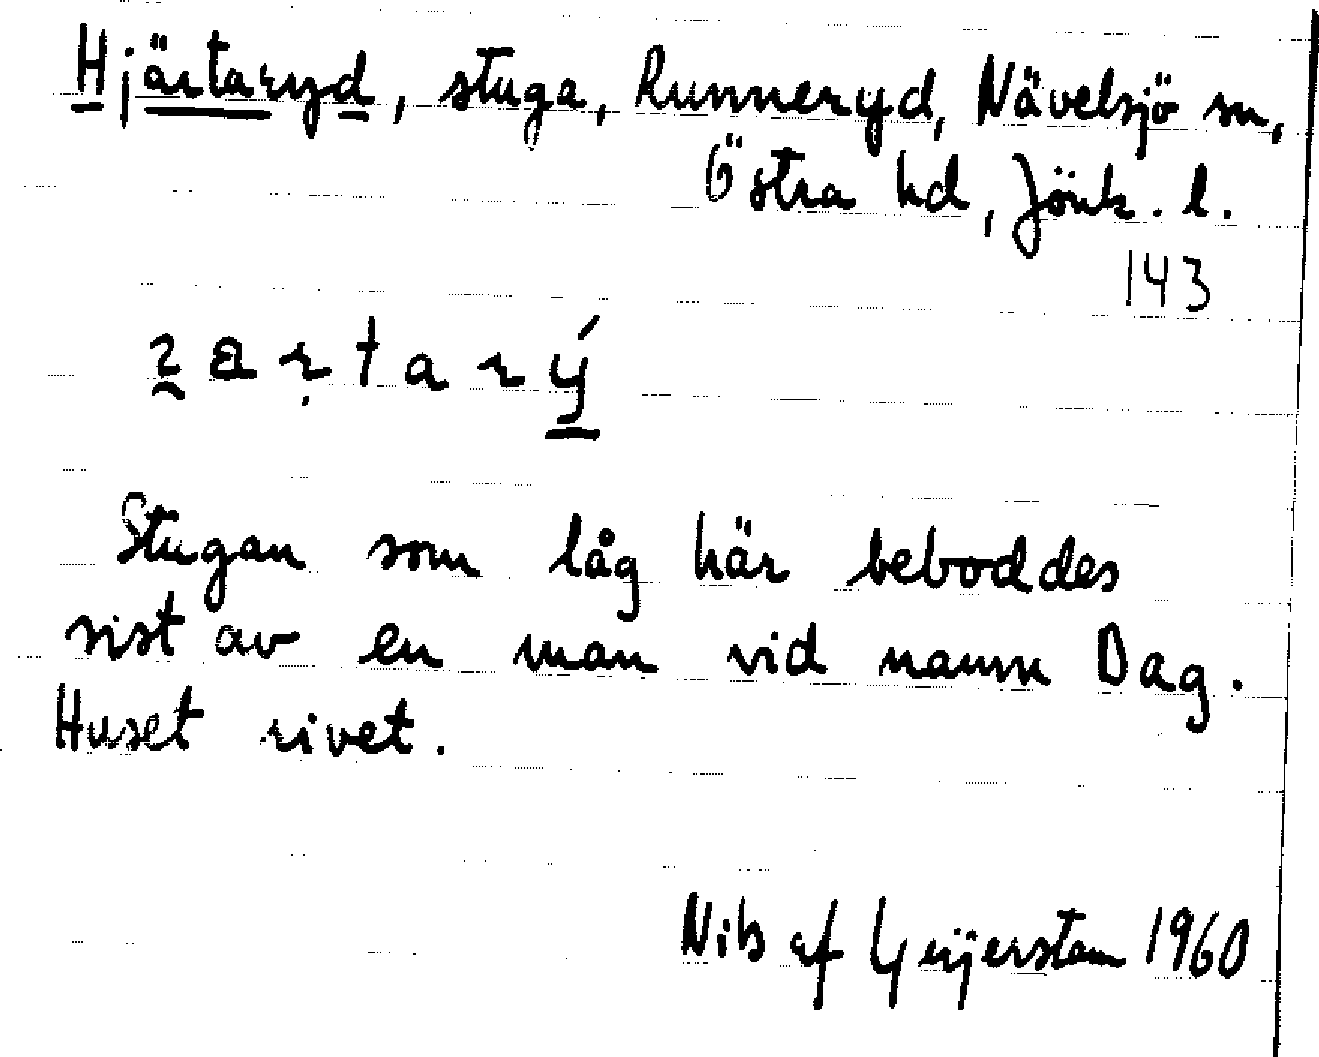 Hjärtaryd, stuga, Runneryd, Nävelsjö sn,
Östra hd, Jönk. l.
143
Stugan som låg här beboddes
sist av en man vid namn Dag.
Huset rivet.
Nils af Geijerstam 1960